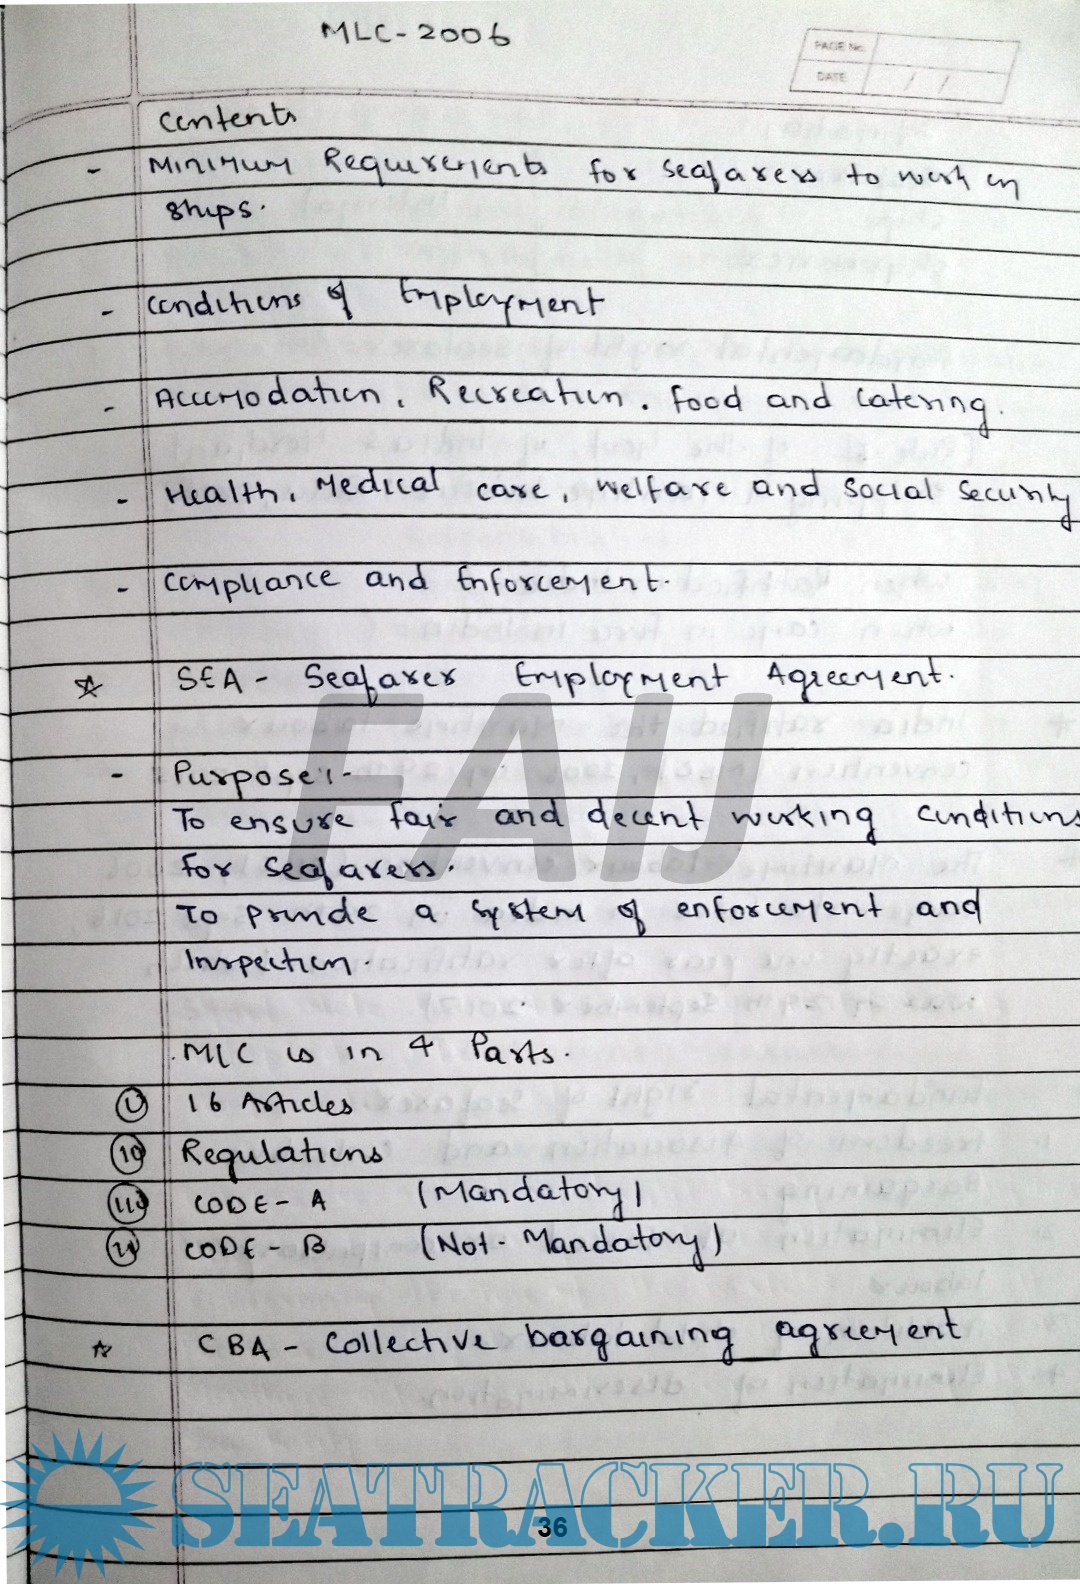 MLC-2006
PAGE No.
DATE / /
Contents
- Minimum Requirements for seafarers to work on
ships.
- Conditions of Employment
- Accomodation, Recreation, food and catering.
- Health, Medical care, welfare and social security
- Compliance and Enforcement.
☆ SEA - Seafarer Employment Agreement.
- Purpose:-
To ensure fair and decent working conditions
for seafarers.
To provide a system of enforcement and
Inspection.
MLC is in 4 Parts.
(i) 16 Articles
(ii) Regulations
(iii) CODE-A (Mandatory)
(iv) CODE-B (Not-Mandatory)
☆ CBA - Collective bargaining agreement
FAIJ
SEATRACKER.RU
36